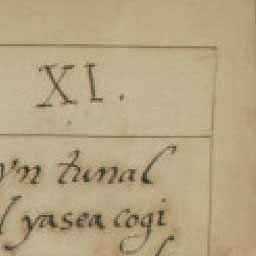 XI.
vn tunal
yasea cogi